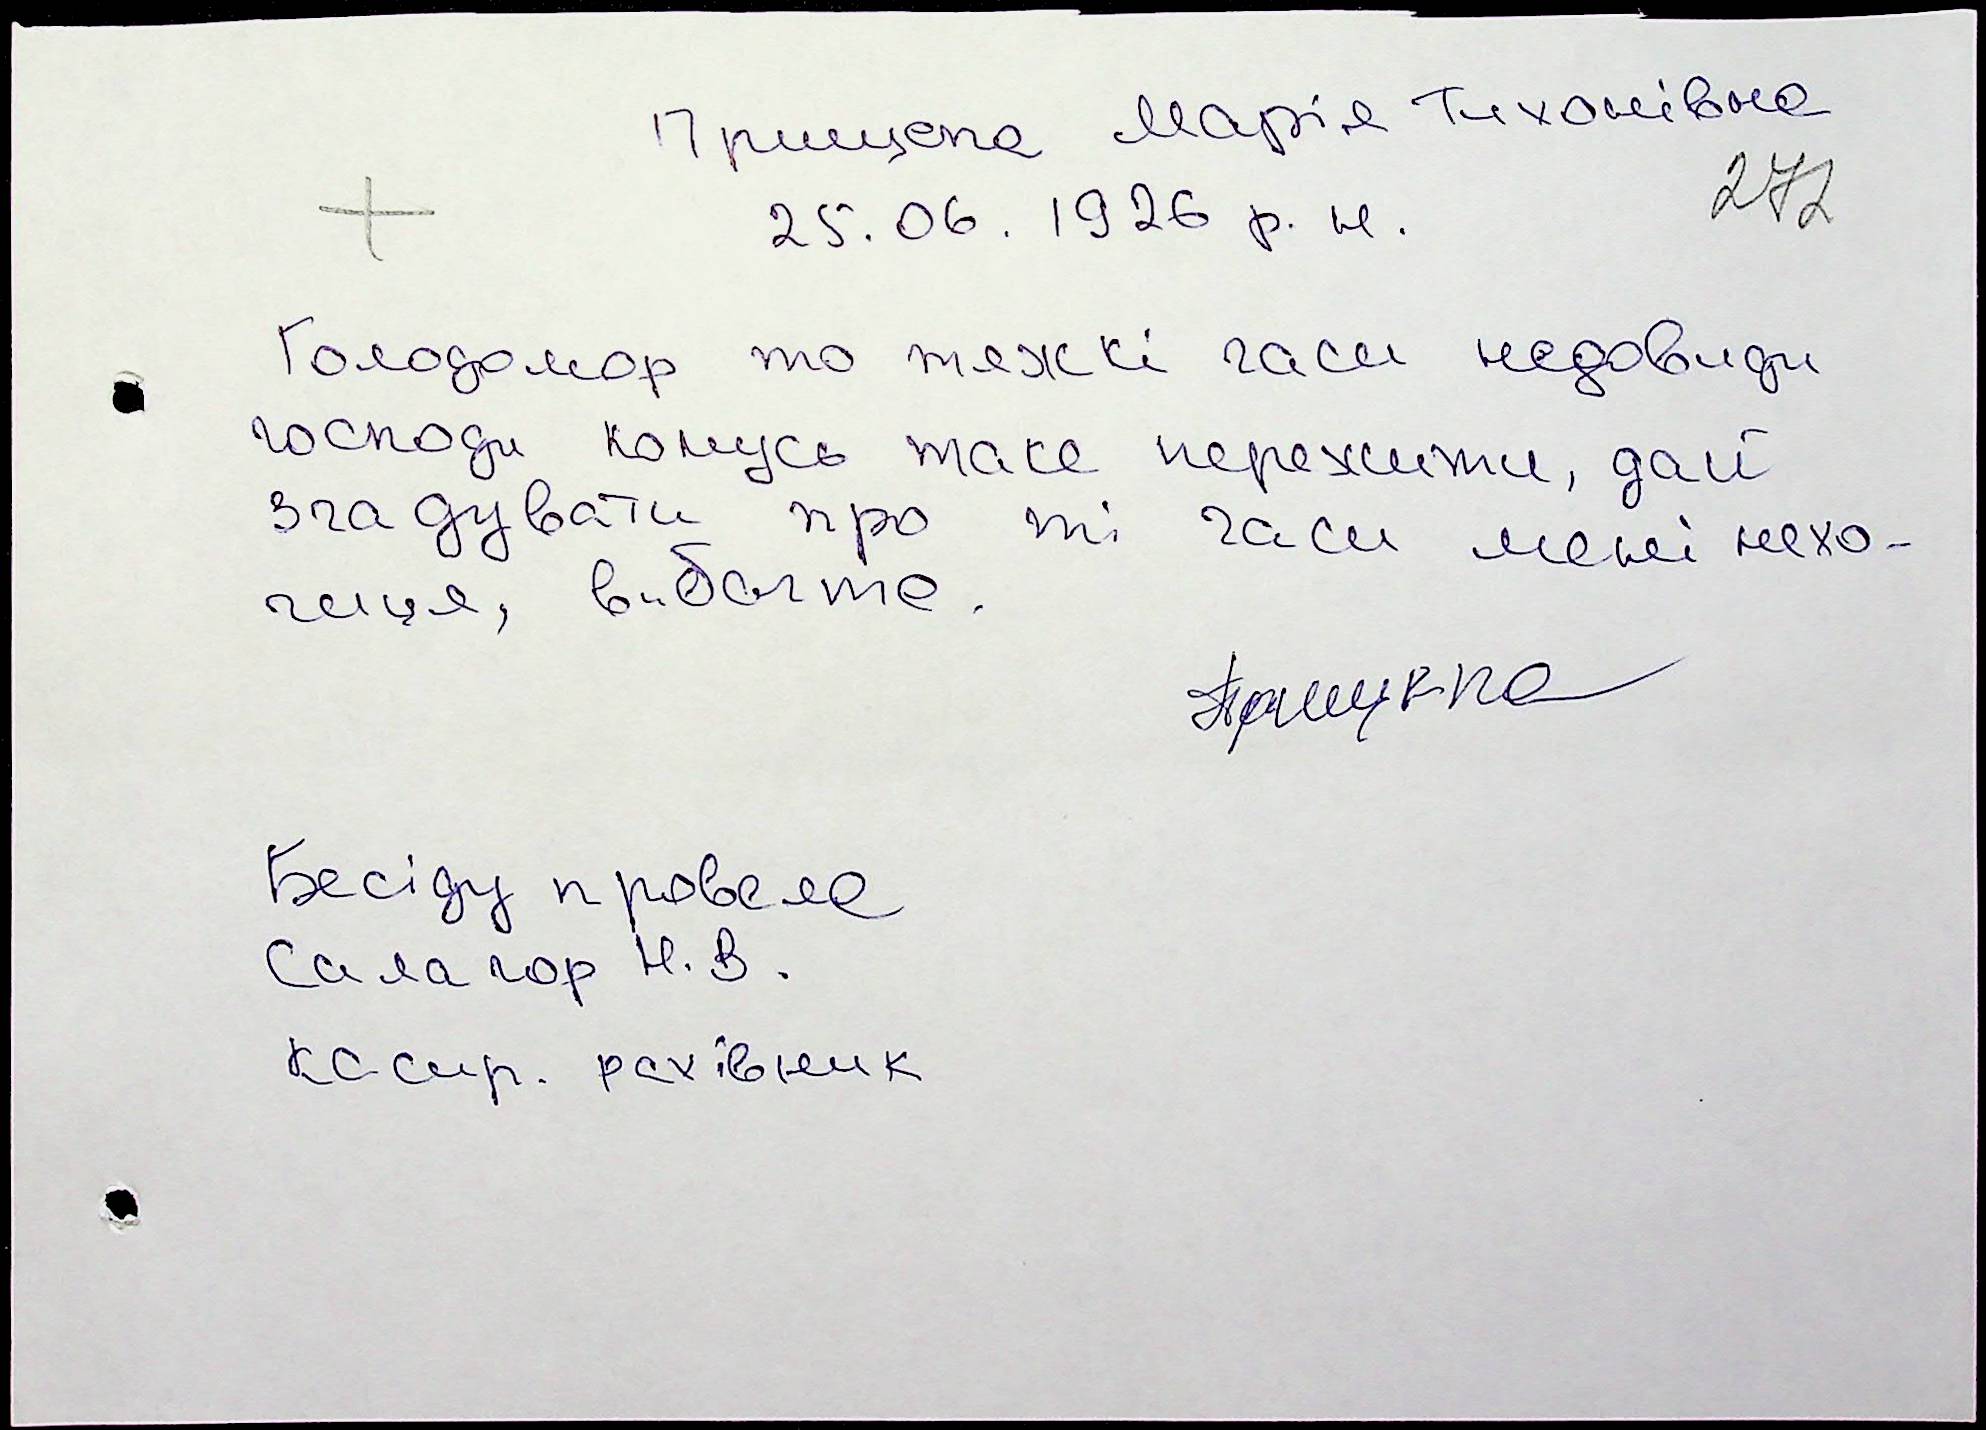 Прищепа Марія Тихонівна
272
25.06.1926 р.н.
Голодомор то тяжкі часи недовиди
господи комусь таке пережити, дай
згадувати про ті часи мені нехо-
чиця, вибачте.
Прищепа
Бесіду провела
Салагор Н.В.
касир. рахівник